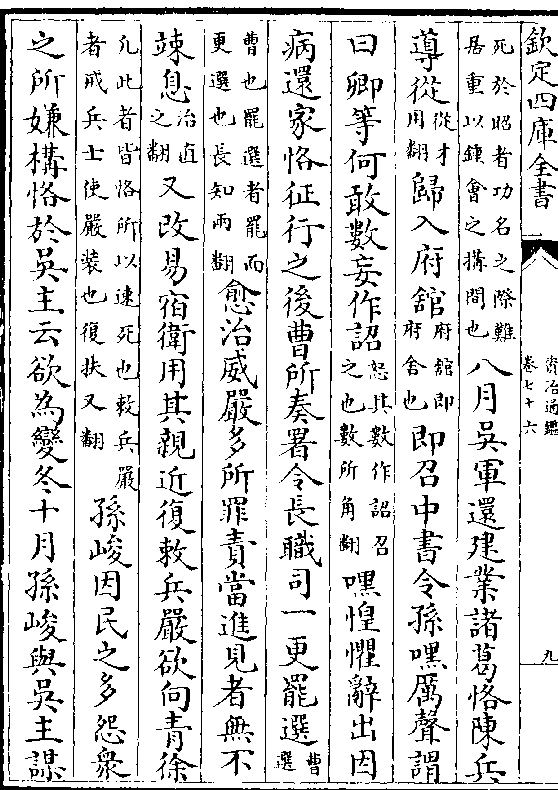 欽定四庫全書
資治通鑑
卷七十六
九
死於昭者功名之際難
居重以鍾會之搆間也
八月吳軍還建業諸葛恪陳兵
導從
從才
用翻
歸入府舘
府舘即
府舍也
即召中書令孫嘿厲聲謂
曰卿等何敢數妄作詔
怒其數作詔召
之也數所角翻
嘿惶懼辭出因
病還家恪征行之後曹所奏署令長職司一更罷選
曹
選
曹也罷選者罷而
更選也長知兩翻
愈治威嚴多所罪責當進見者無不
竦息
治直
之翻
又改易宿衛用其親近復敕兵嚴欲向青徐
凢此者皆恪所以速死也敕兵嚴
者戒兵士使嚴裝也復扶又翻
孫峻因民之多怨衆
之所嫌構恪於吳主云欲為變冬十月孫峻與吳主謀